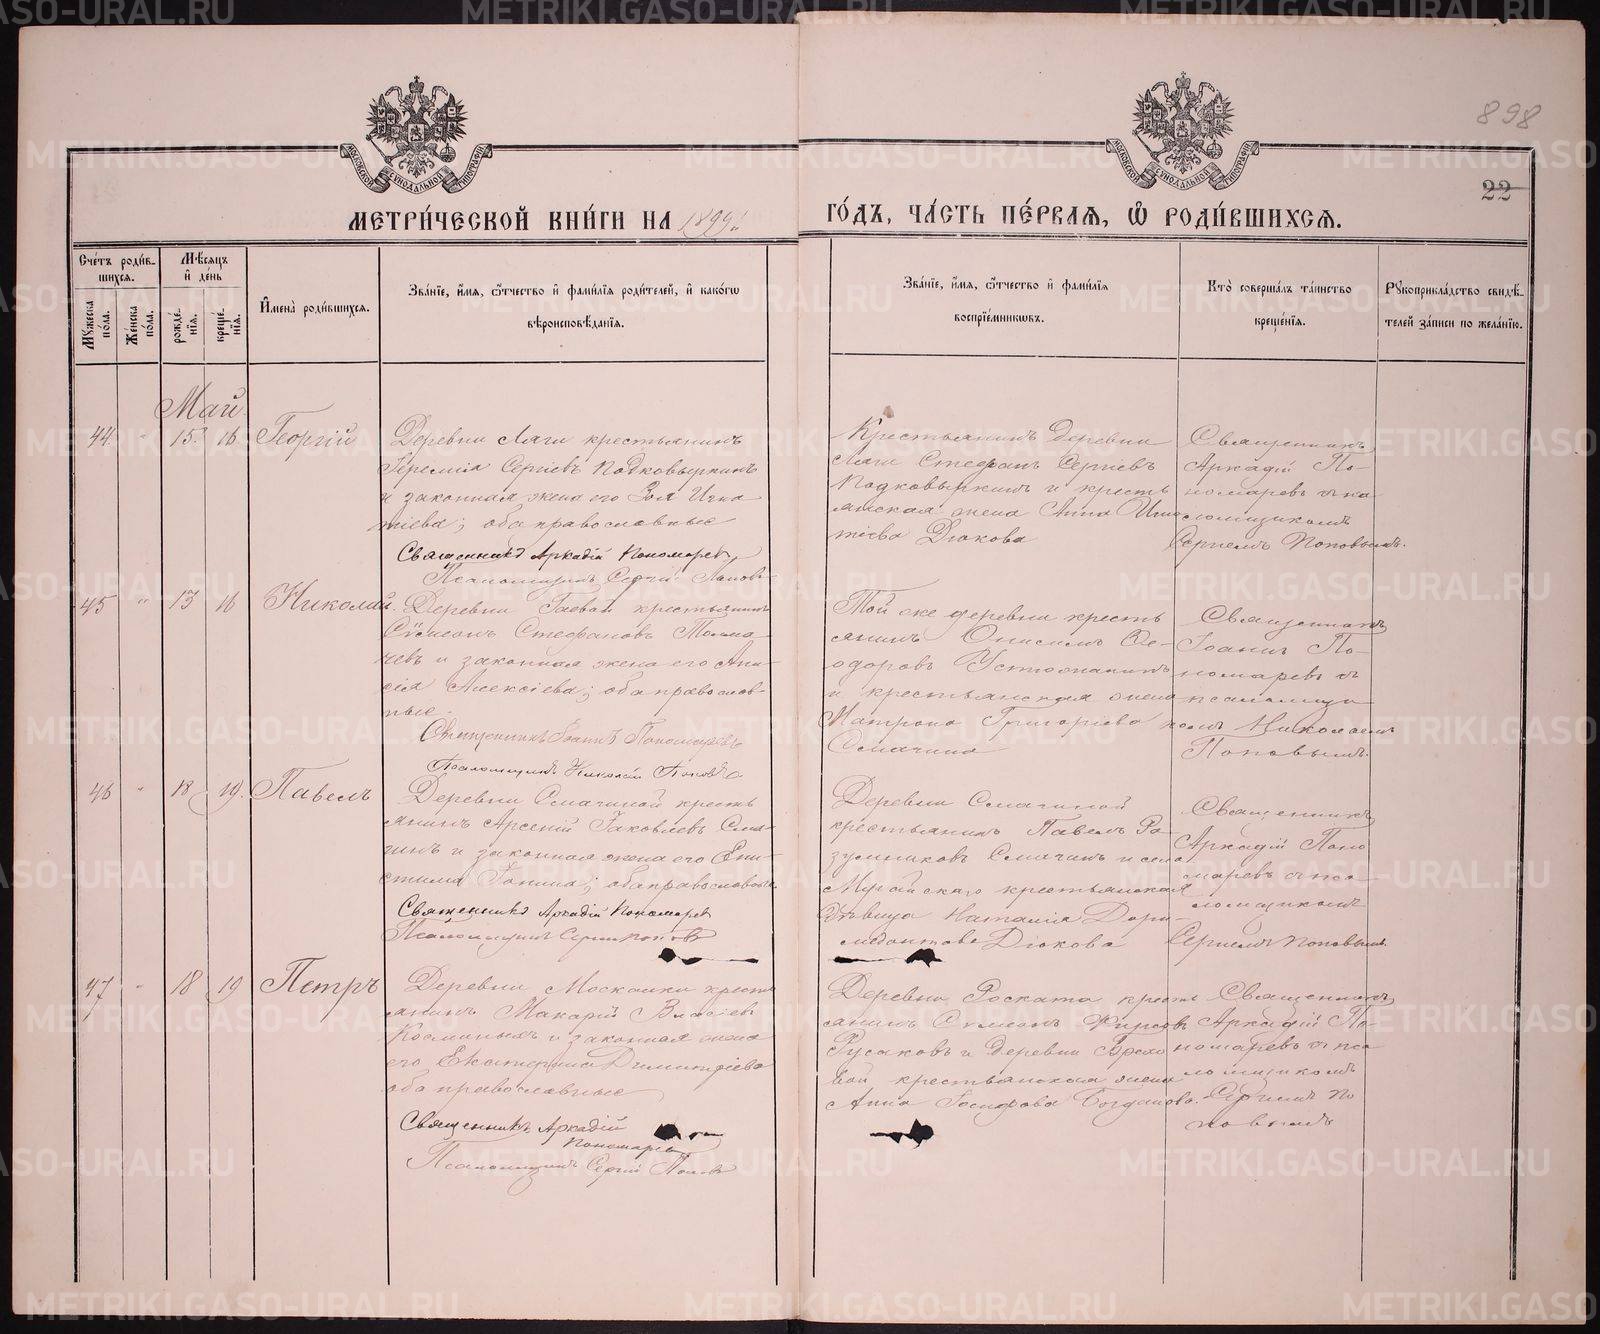 898
22
МОСКОВСКОЙ СѴНОДАЛЬНОЙ ТИПОГРАФІИ
МОСКОВСКОЙ СѴНОДАЛЬНОЙ ТИПОГРАФІИ
МЕТРИ́ЧЕСКОЙ КНИ́ГИ НА 1899
ГО́ДЪ, ЧА́СТЬ ПЕ́РВАЯ, Ѿ РОДИ́ВШИХСЯ.
Сче́тъ роди́в-
шихся.
Мужеска по́ла.
Же́нска по́ла.
Мѣ́сяцъ
и҆ де́нь
рожде́-
нїя.
креще́-
нїя.
И҆мена̀ роди́вшихся.
Зва́нїе, и҆́мя, ѻ҆́тчество и҆ фами́лїя роди́телей, и҆ како́гѡ
вѣроисповѣ́данїя.
Зва́нїе, и҆́мя, ѻ҆́тчество и҆ фами́лїя
воспрїе́мникѡвъ.
Кто̀ соверша́лъ та́инство
креще́нїя.
Рукоприкла́дство свидѣ́-
телей за́писи по жела́нїю.
Май
44. " 15. 16 Георгій
Деревни Ляги крестьянинъ
Іеремія Сергіевъ Подковыркинъ
и законная жена его Зоя Игна
тіева; оба православные
Священникъ Аркадій Пономарев
Псаломщикъ Сергій Попов
Крестьянинъ деревни
Ляги Стефанъ Сергіевъ
Подковыркинъ и кресть
янская жена Анна Игна
тіева Дюкова
Священникъ
Аркадій По-
номаревъ с пса
ломщикомъ
Сергіемъ Поповымъ.
45 " 13 16 Николай.
Деревни Гаевой крестьянинъ
Сѵмеонъ Стефановъ Толма-
чевъ и законная жена его Ани-
сія Алексіева; оба православ-
ные.
Священникъ Іоаннъ Пономаревъ
Псаломщикъ Николай Поповъ
Той же деревни кресть
янинъ Онисимъ Ѳе-
одоровъ Устюжанинъ
и крестьянская жена
Матрона Григоріева
Смагина
Священникъ
Іоаннъ По-
номаревъ съ
псаломщи
комъ Николаемъ
Поповымъ.
46 " 18 19. Павелъ
Деревни Смагиной кресть
янинъ Арсеній Іаковлевъ Сма-
гинъ и законная жена его Епи-
стимія; оба православные
Священникъ Аркадій Пономарев
Псаломщикъ Сергій Поповъ
Деревни Смагиной
крестьянинъ Павелъ Ра-
зумниковъ Смагинъ и села
крестьянская
дѣвица Наталія Дори-
медонтова Дюкова
Священникъ
Аркадій Поно
маревъ с пса
ломщикомъ
Сергіемъ Поповымъ.
47 " 18 19 Петръ
Деревни Москалки кресть
янинъ Макарій Власіевъ
Косминыхъ и законная жена
его Екатерина Димитріева
оба православные
Священникъ Аркадій
Пономарев
Псаломщикъ Сергій Попов
Деревни Роската кресть
янинъ Сѵмеонъ Кирсовъ
Русаковъ и деревни Брехо
вой крестьянская жена
Анна Іосифова Богданова.
Священникъ
Аркадій По-
номаревъ с пса
ломщикомъ
Сергіемъ По
повымъ
METRIKI.GASO-URAL.RU